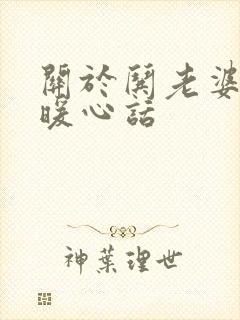 關於鬨老婆
暖心話
神葉理世